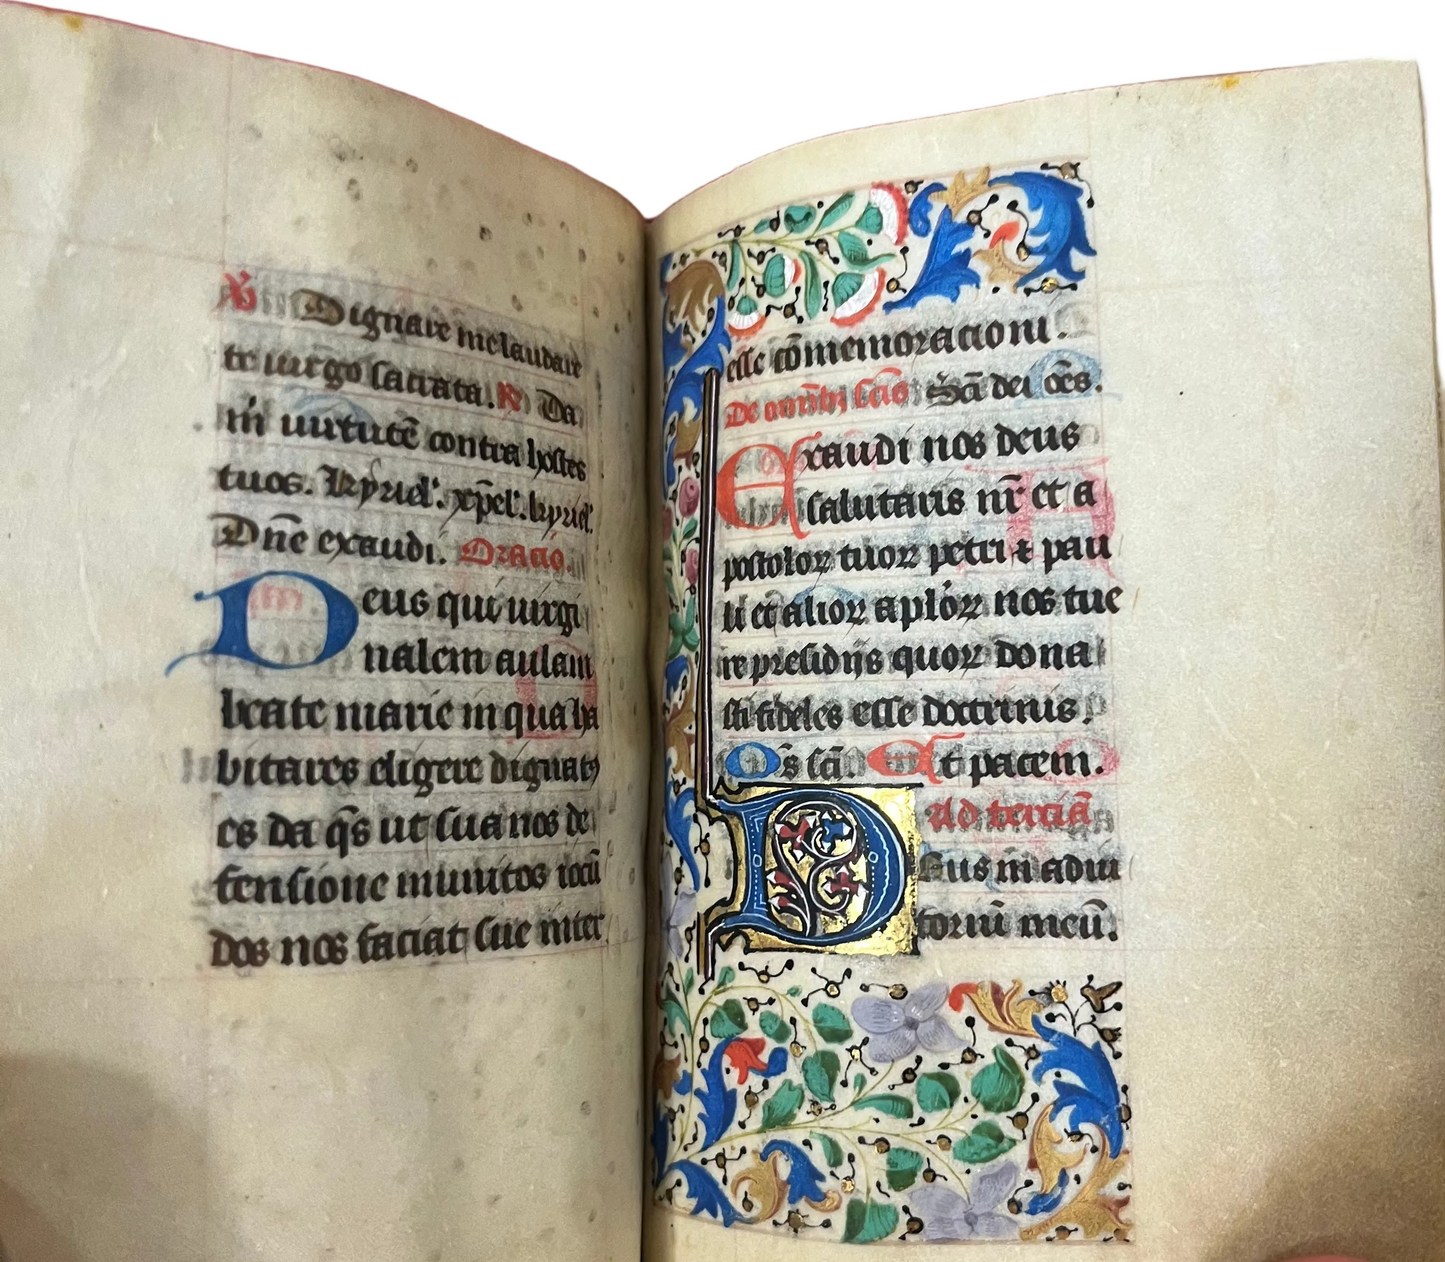 V Dignare me laudare
te uirgo sacrata. R Da
m̄ uirtutē contra hostes
tuos. Kyriel'. xp̄el'. kyriel'.
Dn̄e exaudi. Oracio.
Deus qui uirgi
nalem aulam
beate marie in qua ha
bitares eligere dignatꝰ
es da q̄s ut sua nos de
fensione munitos iocū
dos nos faciat sue inter
esse cōmemoracioni.
De omībꝫ scīs Sc̄ā dei oēs.
Exaudi nos deus
salutaris nr̄ et a
postoloꝝ tuoꝝ petri ⁊ pau
li et alioꝝ aplōꝝ nos tue
re presidijs quoꝝ dona
sti fideles esse doctrinis.
Oс̄s sc̄i. Et pacem.
Ad terciā
Deus in adiu
toriū meū.